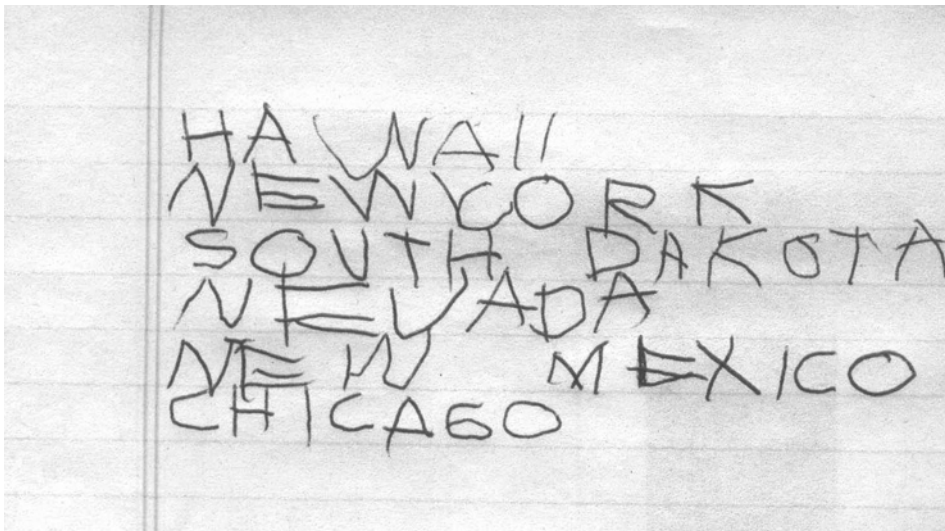 HAWAII
NEW YORK
SOUTH DAKOTA
NEVADA
NEW MEXICO
CHICAGO